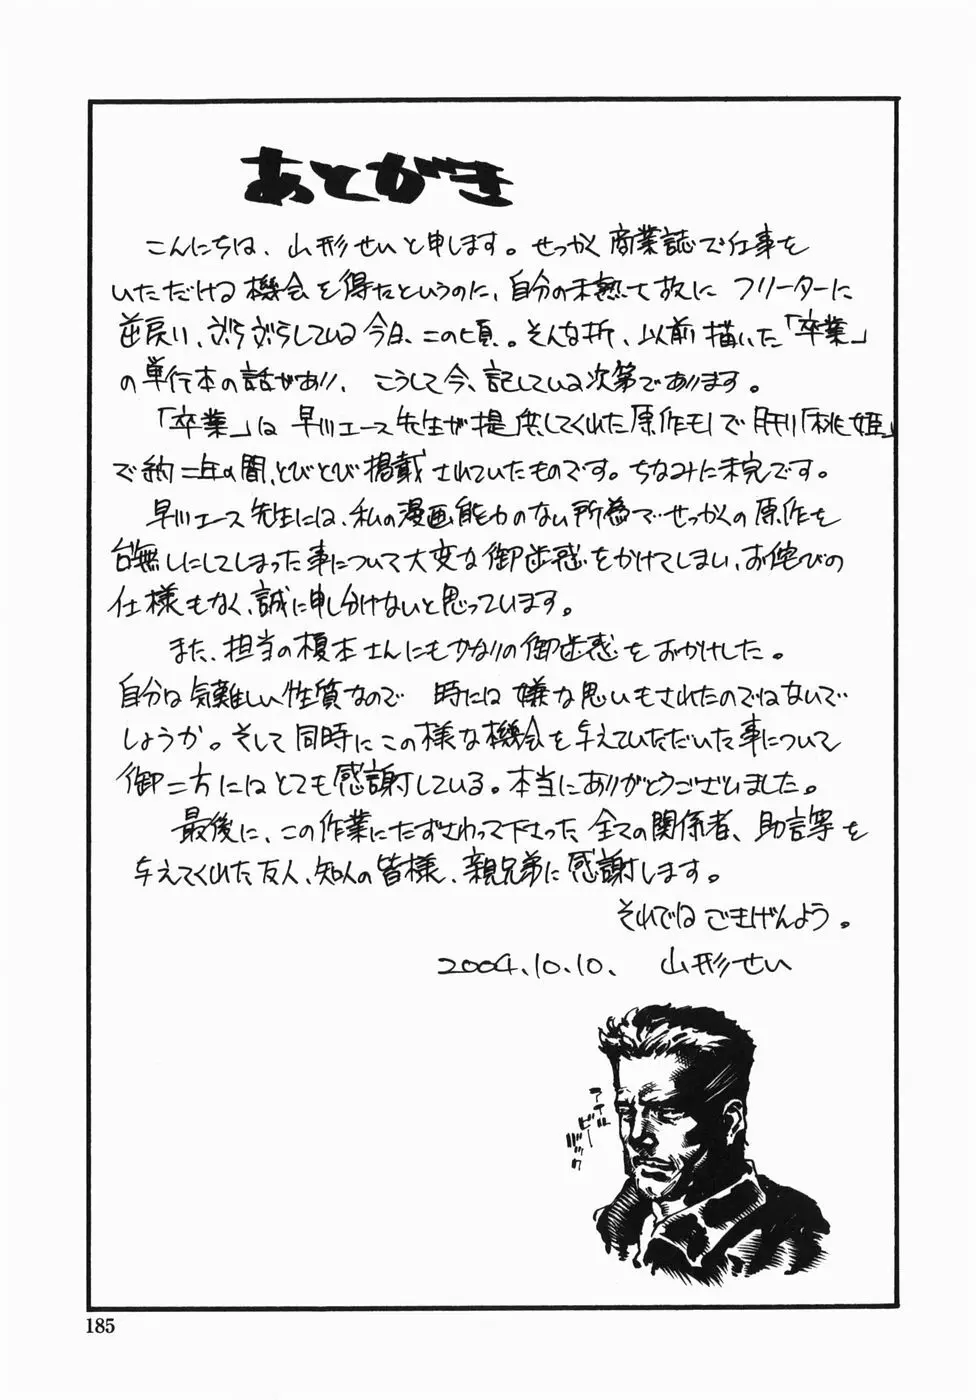 あとがき
こんにちは、山形せいと申します。せっかく商業誌で仕事を
いただける機会を得たというのに、自分の未熟さ故に フリーターに
逆戻り、ぶらぶらしている今日、この頃。そんな折、以前描いた「卒業」
の単行本の話があり、こうして今、記している次第であります。
「卒業」は早川エース先生が提供してくれた原作モノで月刊「桃姫」
で約二年の間、とびとび掲載されていたものです。ちなみに未完です。
早川エース先生には、私の漫画能力のない所為でせっかくの原作を
台無しにしてしまった事について大変な御迷惑をかけてしまい、お侘びの
仕様もなく、誠に申し分けないと思っています。
また、担当の榎本さんにもかなりの御迷惑をおかけした。
自分は気難しい性質なので 時には嫌な思いもされたのではないで
しょうか。そして同時にこの様な機会を与えていただいた事について
御二方にはとても感謝している。本当にありがとうございました。
最後に、この作業にたずさわって下さった全ての関係者、助言等を
与えてくれた友人、知人の皆様、親兄弟に感謝します。
それではごきげんよう。
2004.10.10. 山形せい
アイル
ビー
バック
185